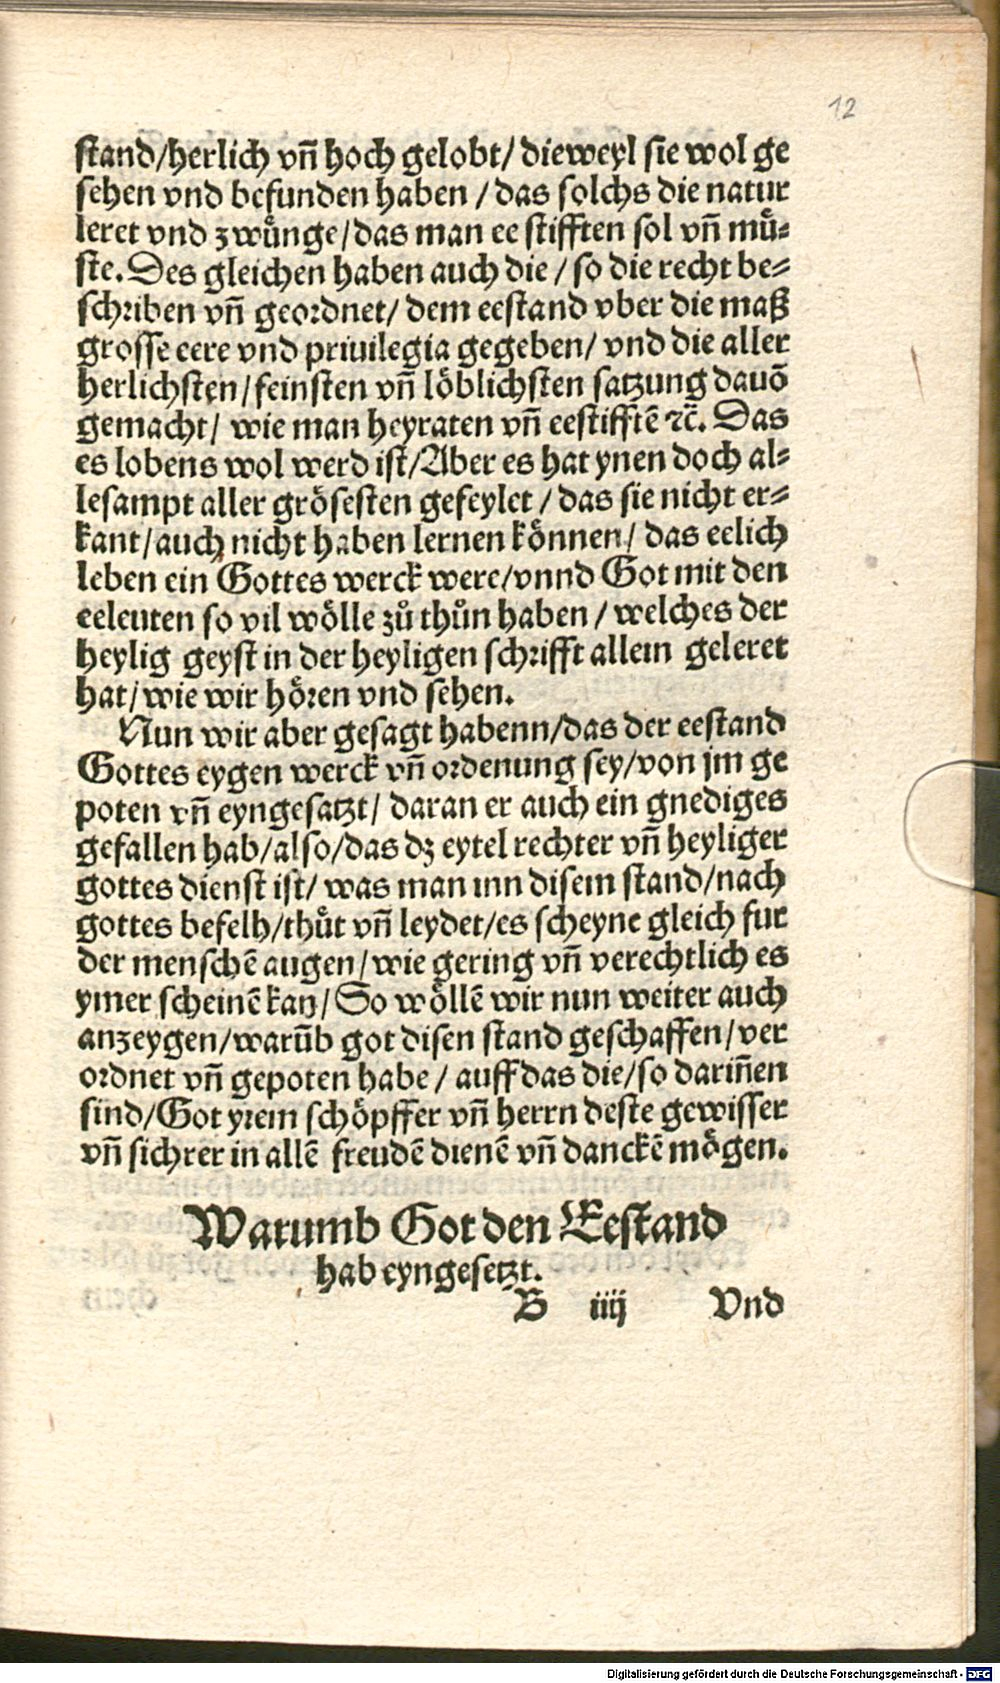 12
stand/herlich vñ hoch gelobt/ dieweyl sie wol ge
sehen vnd befunden haben / das solchs die natur
leret vnd zwünge/das man ee stifften sol vñ mü-
ste. Des gleichen haben auch die / so die recht be-
schriben vñ geordnet/ dem eestand vber die maß
grosse eere vnd priuilegia gegeben/ vnd die aller
herlichsten/feinsten vñ löblichsten satzung dauō
gemacht/ wie man heyraten vñ eestifftē ꝛc̄. Das
es lobens wol werd ist/Aber es hat ynen doch al-
lesampt aller grösesten gefeylet / das sie nicht er-
kant/auch nicht haben lernen können/ das eelich
leben ein Gottes werck were/vnnd Got mit den
eeleuten so vil wölle zů thůn haben / welches der
heylig geyst in der heyligen schrifft allein geleret
hat/wie wir hören vnd sehen.
Nun wir aber gesagt habenn/das der eestand
Gottes eygen werck vñ ordenung sey/von jm ge
poten vñ eyngesatzt/ daran er auch ein gnediges
gefallen hab/also/das dz eytel rechter vñ heyliger
gottes dienst ist/ was man inn disem stand/nach
gottes befelh/thůt vñ leydet/es scheyne gleich fur
der menschē augen/wie gering vñ verechtlich es
ymer scheinē kan/So wöllē wir nun weiter auch
anzeygen/warūb got disen stand geschaffen/ver
ordnet vñ gepoten habe / auff das die/so dariñen
sind/Got yrem schöpffer vñ herrn deste gewisser
vñ sichrer in allē freudē dienē vñ danckē mögen.
Warumb Got den Eestand
hab eyngesetzt.
B iiij Vnd
Digitalisierung gefördert durch die Deutsche Forschungsgemeinschaft - DFG